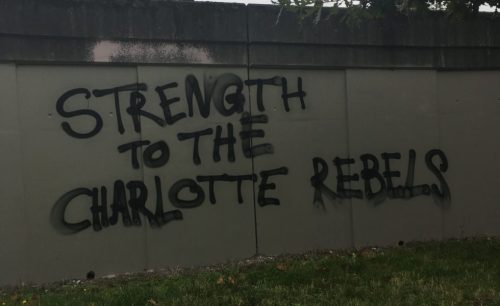 STRENGTH
TO THE
CHARLOTTE REBELS